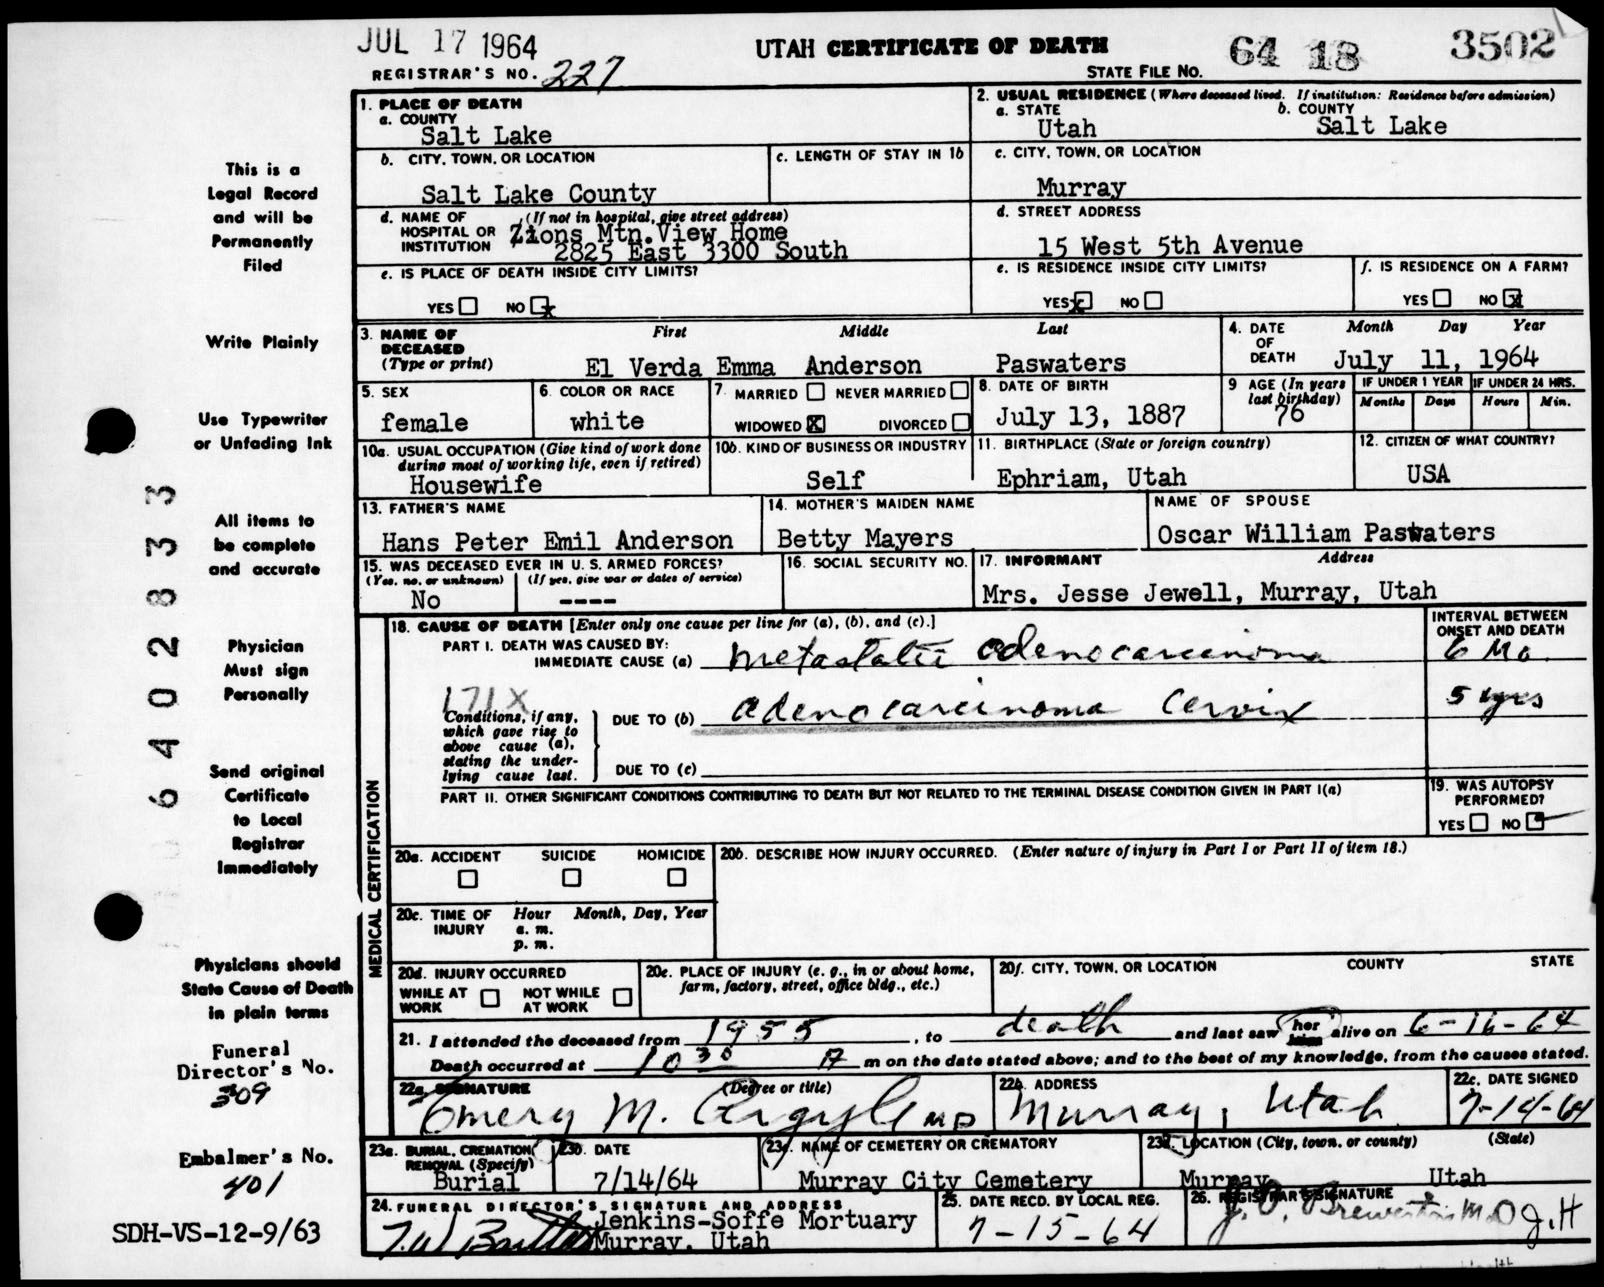 JUL 17 1964
UTAH CERTIFICATE OF DEATH
64 18 3502
REGISTRAR'S NO. 227
STATE FILE NO.
1. PLACE OF DEATH
a. COUNTY
Salt Lake
2. USUAL RESIDENCE (Where deceased lived. If institution: Residence before admission)
a. STATE
Utah
b. COUNTY
Salt Lake
b. CITY, TOWN, OR LOCATION
Salt Lake County
c. LENGTH OF STAY IN 1b
c. CITY, TOWN, OR LOCATION
Murray
d. NAME OF HOSPITAL OR INSTITUTION
(If not in hospital, give street address)
Zions Mtn. View Home
2825 East 3300 South
d. STREET ADDRESS
15 West 5th Avenue
e. IS PLACE OF DEATH INSIDE CITY LIMITS?
YES NO x
e. IS RESIDENCE INSIDE CITY LIMITS?
YES x NO
f. IS RESIDENCE ON A FARM?
YES NO x
3. NAME OF DECEASED
(Type or print)
First Middle Last
El Verda Emma Anderson Paswaters
4. DATE OF DEATH
Month Day Year
July 11, 1964
5. SEX
female
6. COLOR OR RACE
white
7. MARRIED NEVER MARRIED
WIDOWED X DIVORCED
8. DATE OF BIRTH
July 13, 1887
9 AGE (In years last birthday)
76
IF UNDER 1 YEAR
Months Days
IF UNDER 24 HRS.
Hours Min.
10a. USUAL OCCUPATION (Give kind of work done during most of working life, even if retired)
Housewife
10b. KIND OF BUSINESS OR INDUSTRY
Self
11. BIRTHPLACE (State or foreign country)
Ephriam, Utah
12. CITIZEN OF WHAT COUNTRY?
USA
13. FATHER'S NAME
Hans Peter Emil Anderson
14. MOTHER'S MAIDEN NAME
Betty Mayers
NAME OF SPOUSE
Oscar William Paswaters
15. WAS DECEASED EVER IN U. S. ARMED FORCES?
(Yes, no, or unknown) (If yes, give war or dates of service)
No ----
16. SOCIAL SECURITY NO.
17. INFORMANT Address
Mrs. Jesse Jewell, Murray, Utah
MEDICAL CERTIFICATION
18. CAUSE OF DEATH [Enter only one cause per line for (a), (b), and (c).]
INTERVAL BETWEEN ONSET AND DEATH
PART I. DEATH WAS CAUSED BY:
IMMEDIATE CAUSE (a) metastatic adenocarcinoma 6 Mo.
171X
Conditions, if any, which gave rise to above cause (a), stating the underlying cause last.
DUE TO (b) adenocarcinoma cervix 5 yrs
DUE TO (c)
PART II. OTHER SIGNIFICANT CONDITIONS CONTRIBUTING TO DEATH BUT NOT RELATED TO THE TERMINAL DISEASE CONDITION GIVEN IN PART I(a)
19. WAS AUTOPSY PERFORMED?
YES NO
20a. ACCIDENT SUICIDE HOMICIDE
20b. DESCRIBE HOW INJURY OCCURRED. (Enter nature of injury in Part I or Part II of item 18.)
20c. TIME OF INJURY Hour Month, Day, Year
a. m.
p. m.
20d. INJURY OCCURRED
WHILE AT WORK NOT WHILE AT WORK
20e. PLACE OF INJURY (e. g., in or about home, farm, factory, street, office bldg., etc.)
20f. CITY, TOWN, OR LOCATION COUNTY STATE
21. I attended the deceased from 1955, to death and last saw her him alive on 6-16-64
Death occurred at 10 30 A m on the date stated above; and to the best of my knowledge, from the causes stated.
22a. SIGNATURE (Degree or title)
Emery M. Argyle MD
22b. ADDRESS
Murray, Utah
22c. DATE SIGNED
7-14-64
23a. BURIAL, CREMATION REMOVAL (Specify)
Burial
23b. DATE
7/14/64
23c. NAME OF CEMETERY OR CREMATORY
Murray City Cemetery
23d. LOCATION (City, town, or county) (State)
Murray Utah
24. FUNERAL DIRECTOR'S SIGNATURE AND ADDRESS
Jenkins-Soffe Mortuary
Murray, Utah
25. DATE RECD. BY LOCAL REG.
7-15-64
26. REGISTRAR'S SIGNATURE
J.H
This is a
Legal Record
and will be
Permanently
Filed
Write Plainly
Use Typewriter
or Unfading Ink
All items to
be complete
and accurate
Physician
Must sign
Personally
Send original
Certificate
to Local
Registrar
Immediately
Physicians should
State Cause of Death
in plain terms
Funeral
Director's No.
309
Embalmer's No.
401
SDH-VS-12-9/63
6402833